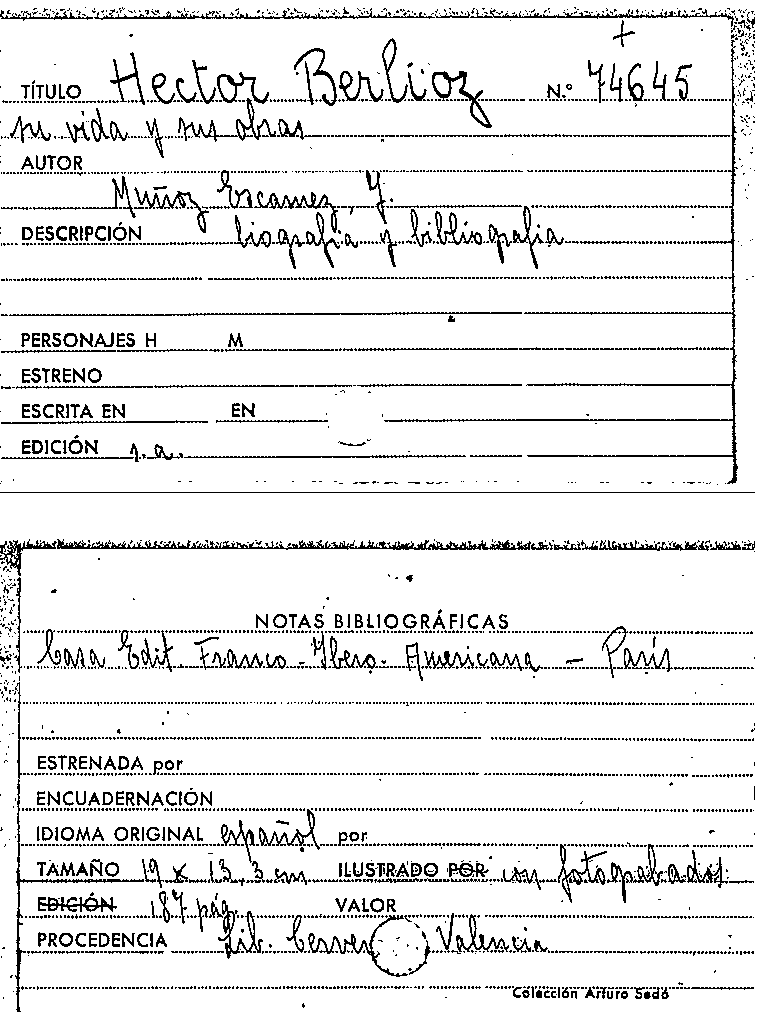 +
TÍTULO Hector Berlioz N.º 74645
su vida y sus obras
AUTOR
Muñoz Escamez, J.
DESCRIPCIÓN biografia y bibliografia
PERSONAJES H M
ESTRENO
ESCRITA EN EN
EDICIÓN s.a.
NOTAS BIBLIOGRÁFICAS
Casa Edit. Franco-Ibero-Americana - París
ESTRENADA por
ENCUADERNACIÓN
IDIOMA ORIGINAL español por
TAMAÑO 19 x 13,3 cm ILUSTRADO POR con fotograbados
EDICIÓN 187 pág. VALOR
PROCEDENCIA Lib. Valencia
Colección Arturo Sedó